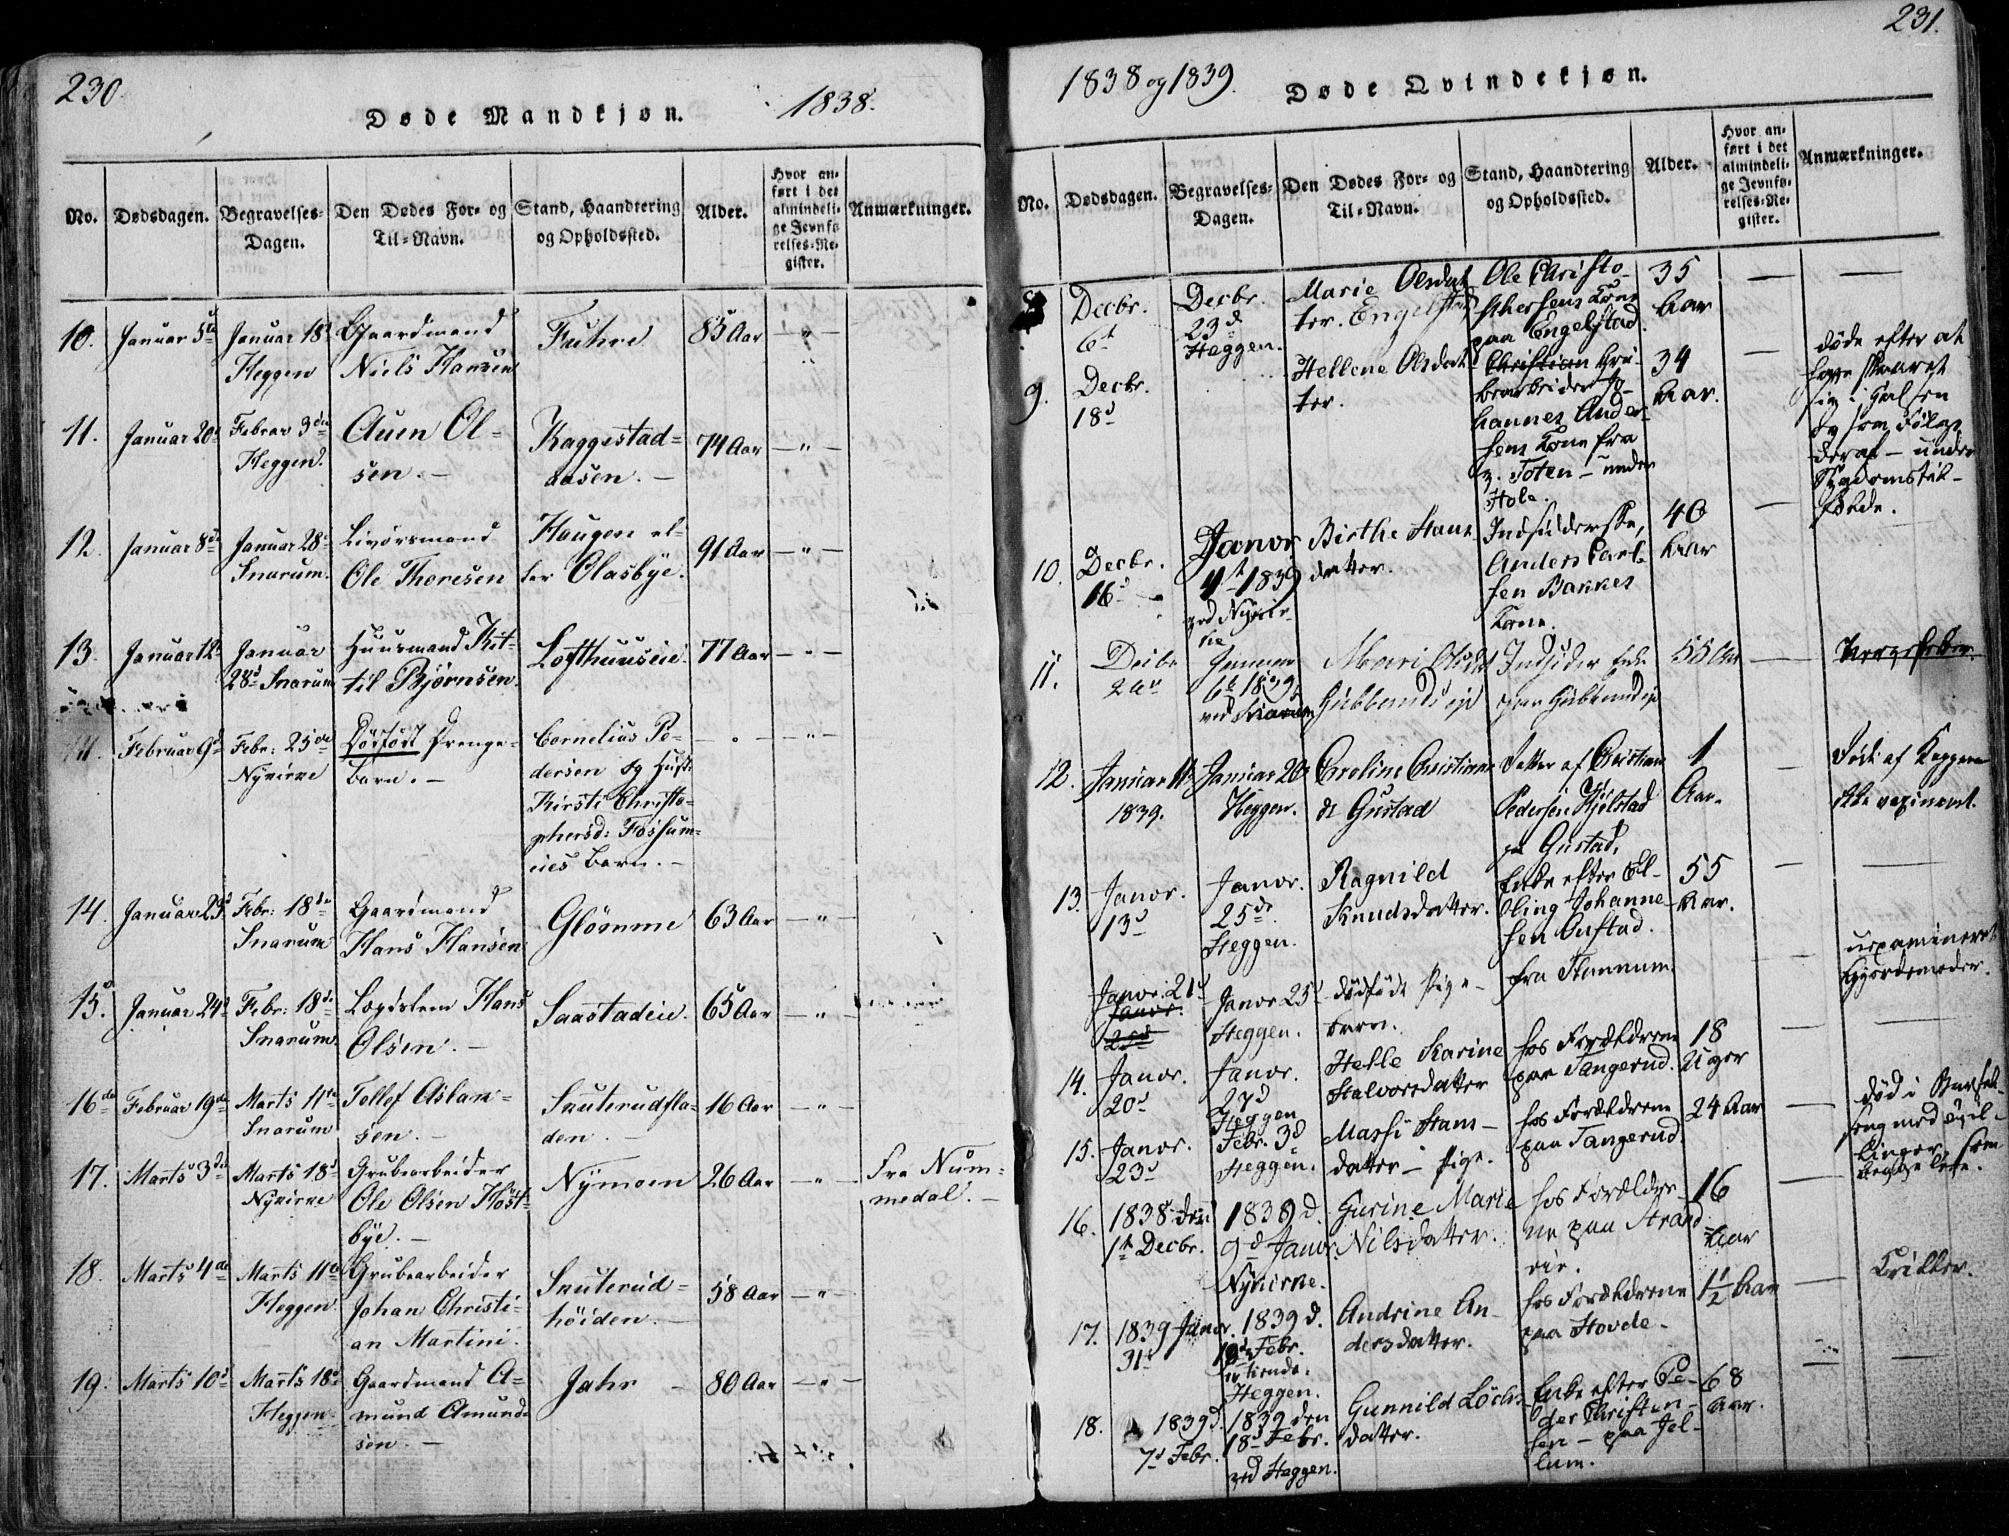 230.
Døde Mandkjøn.
1838.
No.
Dødsdagen.
Begravelses-
Dagen.
Den Dødes For- og
Til-Navn.
Stand, Haandtering
og Opholdssted.
Alder.
Hvor an-
ført i det
almindeli-
ge Jevnfø-
relses-Re-
gister.
Anmærkninger.
10.
Januar 5te
Januar 18d
Heggen
Gaardmand
Niels Hansen
Fuhre
85 Aar
— " —
11.
Januar 20d
Februar 3die
Heggen.
Auen Ol-
sen. —
Kaggestad-
aasen. —
74 Aar
— " —
12.
Januar 8de
Januar 28d
Snarum.
Livørsmand
Ole Thoresen
Haugen el-
ler Olasbye.
91 Aar
— " —
13.
Januar 12
Januar
28d Snarum
Huusmand Kit-
til Bjørnsen.
Lofthuuseie
77 Aar
— " —
Februar 9d
Febr: 25de
Nykirke
Dødfødt Drenge-
barn. —
Cornelius Pe-
dersen og Hust:
Kirsti Christo-
phersd: Fossum-
eies Barn. —
— " —
— " —
14.
Januar 23d
Febr: 18de
Snarum
Gaardmand
Hans Hansen
Glømme
63 Aar
— " —
15.
Januar 24d
Febr: 18de
Snarum
Lægdslem Hans
Olsen. —
Saastadeie.
65 Aar
— " —
16de
Februar 19de
Marts 11te
Snarum
Tollef Aslam-
sen. —
Snuterudfla-
den. —
16 Aar
— " —
17.
Marts 3die
Marts 18d
Nykirke
Grubearbeider
Ole Olsen Høst-
bye. —
Nymoen
26 Aar
— " —
Fra Num-
medal. —
18.
Marts 4de
Marts 11te
Heggen
Grubearbeider
Johan Christi-
an Martini.
Snuterud-
høiden. —
58 Aar
— " —
19.
Marts 10d
Marts 18d
Heggen
Gaardmand A-
mund Amund-
sen. —
Jahr —
80 Aar
— " —
231.
1838 og 1839.
Døde Qvindekjøn.
No.
Dødsdagen.
Begravelses-
Dagen.
Den Dødes For- og
Til-Navn.
Stand, Haandtering
og Opholdssted.
Alder.
Hvor an-
ført i det
almindeli-
ge Jevnfø-
relses-Re-
gister.
Anmærkninger.
Decbr.
6t
Decbr.
23d
Heggen.
Marie Olsdat
ter. Engelstad
Ole Christo-
phersens Kone
paa Engelstad.
35
Aar
—
—
9.
Decbr.
18d
Hellene Olsdat
ter.
Christian Gru-
bearbeider Jo-
hannes Ander-
sens Kone fra
v. Toten — under
Hole.
34
Aar.
—
døde efter at
have skaaret
sig i Halsen
og som Følge
deraf — under
Sygdomstil-
fælde.
10.
Decbr.
16d
Janvr
4t 1839
ved Nykir-
ke
Birthe Hans
datter.
Indsidderske,
Anders Carl-
sen Bakkes
Kone.
40
Aar
—
11.
Decbr
26d
Januar
6te 1839
ved Snarum
Mari Olsdat
Gubberudseje
Indsider Enke
paa Gubberudeje
55 Aar
—
12.
Januar 11te
1839.
Januar 20d
Heggen.
Caroline Christians
dr Gustad
Datter af Christian
Pedersen Kjølstad
paa Gustad.
1
Aar.
—
Død af Kopperne
ikke vaxineret.
13.
Janvr.
13d
Janvr.
25de
Heggen.
Ragnild
Knudsdatter.
Enke efter El-
ling Johanne-
sen Gustad.
55
Aar.
—
—
Janvr. 21d
Janvr.
25d
Janvr 25d
Heggen.
dødfødt Pige-
barn.
fra Stennum
—
uexamineret
Gjordemoder.
14.
Janvr.
20d
Janvr.
27d
Heggen
Helle Karine
Halvorsdatter
hos Forældrene
paa Tangerud.
18
Uger
—
15.
Janvr.
23d
Febr. 3d
Heggen.
Massi Hans-
datter — Pige.
hos Forældrene
paa Tangerud.
24 Aar
—
død i Barsel-
seng med
som
begge leve.
16.
1838 den
1te Decbr.
1839 d.
9d Janvr.
Nykirke.
Gurine Marie
Nilsdatter.
hos Forældre-
ne paa Strand-
eie.
16
Aar
—
17.
1839 Janvr.
31te
1839 d.
Febr.
Heggen.
Andrine An-
dersdatter.
hos Forældrene
paa Hovde.
1 1/2 Aar
—
18.
1839 d.
7d Febr.
1839 den
18d Febr.
ved Heggen.
Gunnild
datter.
Enke efter Pe-
der Christen-
sen — paa Jel-
lum.
68
Aar.
—
—